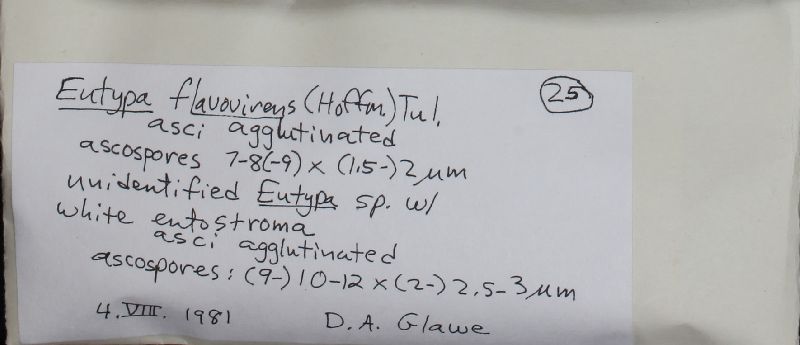 Eutypa flavovirens (Hoffm.) Tul. 25
asci agglutinated
ascospores 7-8(-9) × (1.5-)2 µm
unidentified Eutypa sp. w/
white entostroma
asci agglutinated
ascospores: (9-)10-12 × (2-)2.5-3 µm
4.VIII.1981 D.A. Glawe